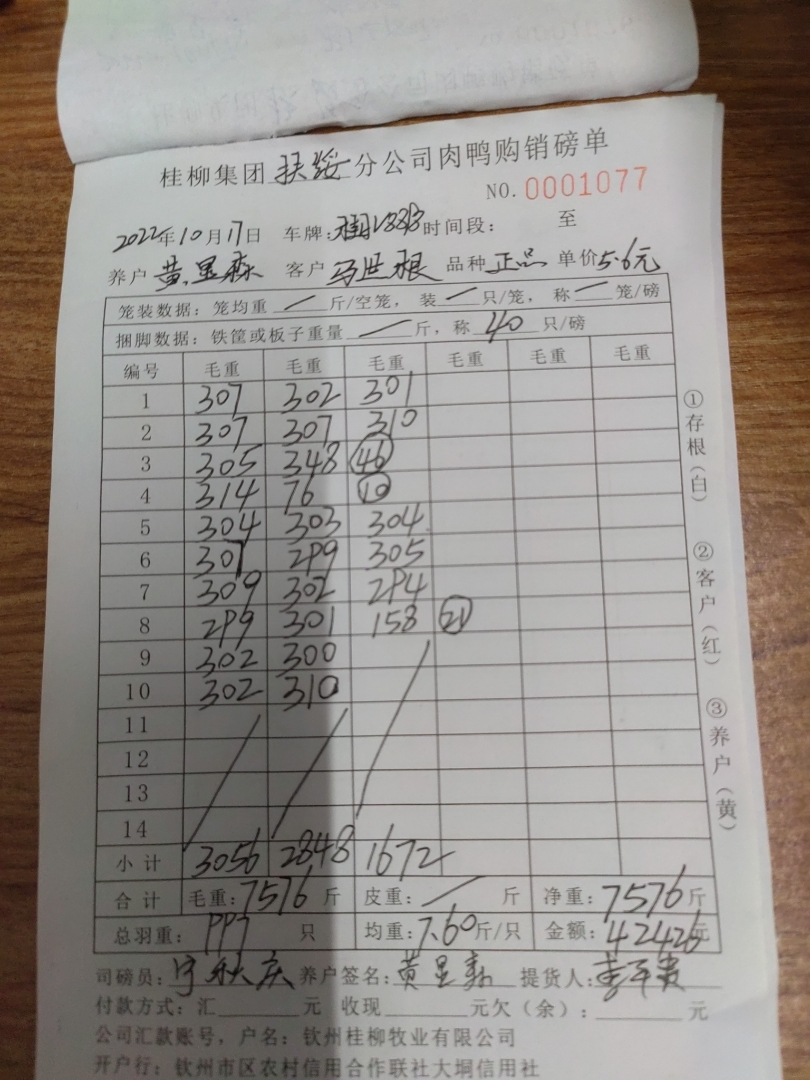 桂柳集团 扶绥 分公司肉鸭购销磅单
NO. 0001077
2022年10月17日 车牌: 时间段: 至
养户 黄显森 客户 马世根 品种 正品 单价5.6元
笼装数据: 笼均重 / 斤/空笼, 装 / 只/笼, 称 / 笼/磅
捆脚数据: 铁筐或板子重量 / 斤, 称 40 只/磅
编号 毛重 毛重 毛重 毛重 毛重 毛重
1 307 302 301
2 307 307 310
3 305 348 46
4 314 76 10
5 304 303 304
6 307 299 305
7 309 302 294
8 299 301 158 21
9 302 300
10 302 310
11
12
13
14
小计 3056 2848 1672
合计 毛重: 7576 斤 皮重: / 斤 净重: 7576 斤
总羽重: 997 只 均重: 7.60 斤/只 金额: 42426元
司磅员: 宁秋庆 养户签名: 黄显森 提货人:
付款方式: 汇 元 收现 元欠(余): 元
公司汇款账号, 户名: 钦州桂柳牧业有限公司
开户行: 钦州市区农村信用合作联社大垌信用社
①存根(白)
②客户(红)
③养户(黄)